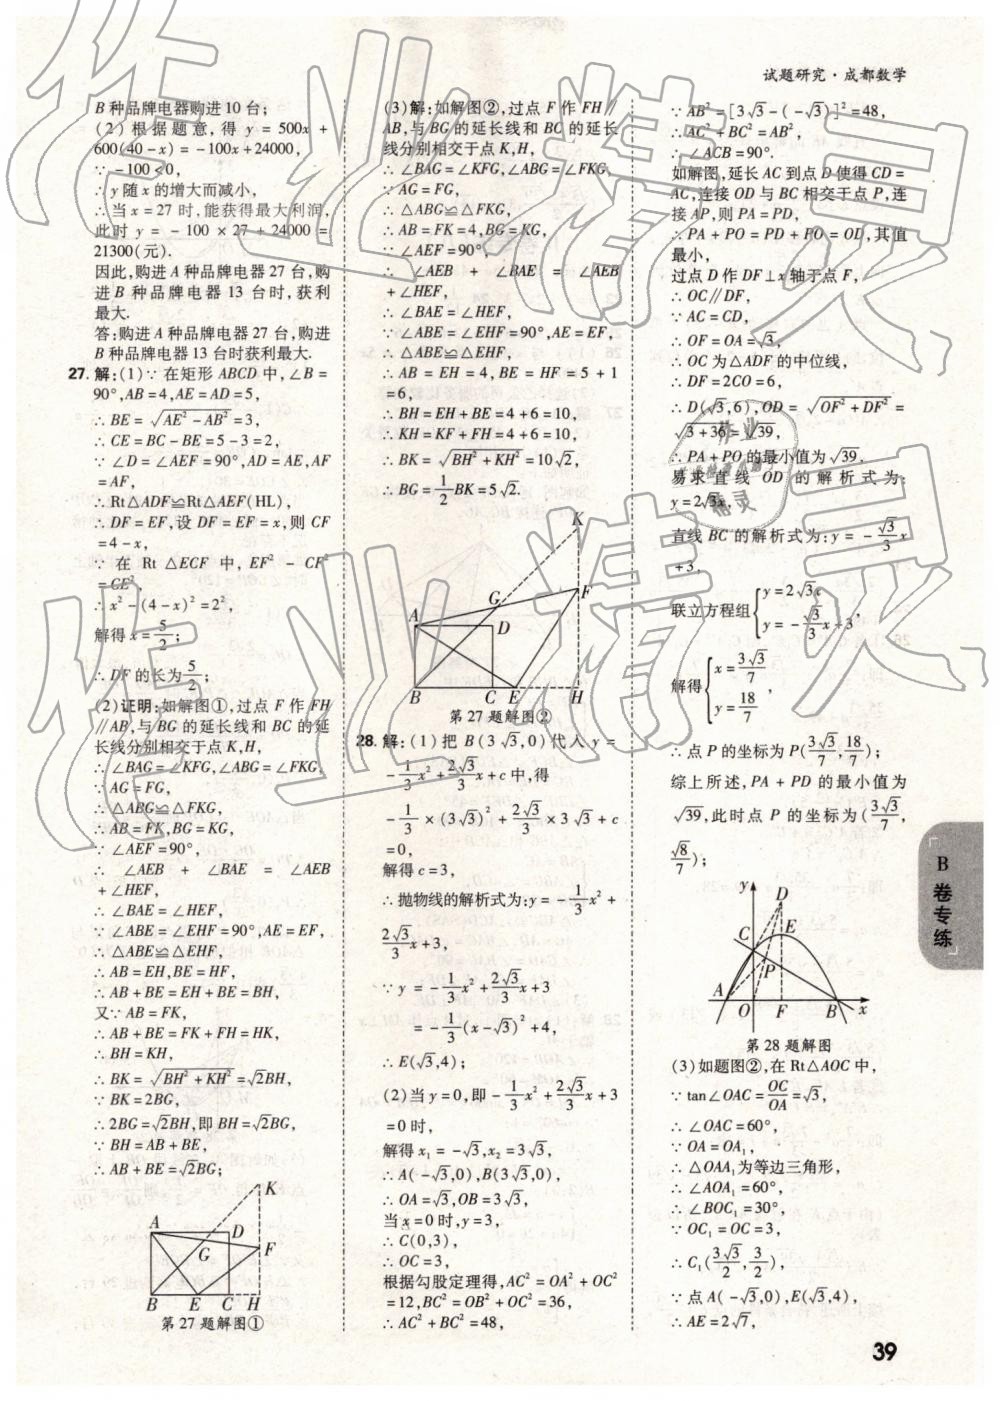 试题研究·成都数学
B 种品牌电器购进 10 台；
(2) 根据题意，得 y = 500x +
600(40 - x) = -100x + 24000，
∵ -100 < 0，
∴ y 随 x 的增大而减小，
∴ 当 x = 27 时，能获得最大利润，
此时 y = -100 × 27 + 24000 =
21300(元).
因此，购进 A 种品牌电器 27 台，购
进 B 种品牌电器 13 台时，获利
最大.
答：购进 A 种品牌电器 27 台，购进
B 种品牌电器 13 台时获利最大.
27. 解：(1)∵ 在矩形 ABCD 中，∠B =
90°，AB = 4，AE = AD = 5，
∴ BE = √(AE² - AB²) = 3，
∴ CE = BC - BE = 5 - 3 = 2，
∵ ∠D = ∠AEF = 90°，AD = AE，AF
= AF，
∴ Rt△ADF≌Rt△AEF(HL)，
∴ DF = EF，设 DF = EF = x，则 CF
= 4 - x，
∵ 在 Rt△ECF 中，EF² - CF²
= CE²，
∴ x² - (4 - x)² = 2²，
解得 x = 5/2；
∴ DF 的长为 5/2；
(2) 证明：如解图①，过点 F 作 FH
∥AB，与 BG 的延长线和 BC 的延
长线分别相交于点 K，H，
∴ ∠BAG = ∠KFG，∠ABG = ∠FKG，
∵ AG = FG，
∴ △ABG≌△FKG，
∴ AB = FK，BG = KG，
∵ ∠AEF = 90°，
∴ ∠AEB + ∠BAE = ∠AEB
+ ∠HEF，
∴ ∠BAE = ∠HEF，
∵ ∠ABE = ∠EHF = 90°，AE = EF，
∴ △ABE≌△EHF，
∴ AB = EH，BE = HF，
∴ AB + BE = EH + BE = BH，
又∵ AB = FK，
∴ AB + BE = FK + FH = HK，
∴ BH = KH，
∴ BK = √(BH² + KH²) = √2BH，
∵ BK = 2BG，
∴ 2BG = √2BH，即 BH = √2BG，
∵ BH = AB + BE，
∴ AB + BE = √2BG；
K
A
D
G
F
B
E
C
H
第 27 题解图①
(3) 解：如解图②，过点 F 作 FH∥
AB，与 BG 的延长线和 BC 的延长
线分别相交于点 K，H，
∴ ∠BAG = ∠KFG，∠ABG = ∠FKG，
∵ AG = FG，
∴ △ABG≌△FKG，
∴ AB = FK = 4，BG = KG，
∵ ∠AEF = 90°，
∴ ∠AEB + ∠BAE = ∠AEB
+ ∠HEF，
∴ ∠BAE = ∠HEF，
∵ ∠ABE = ∠EHF = 90°，AE = EF，
∴ △ABE≌△EHF，
∴ AB = EH = 4，BE = HF = 5 + 1
= 6，
∴ BH = EH + BE = 4 + 6 = 10，
∴ KH = KF + FH = 4 + 6 = 10，
∴ BK = √(BH² + KH²) = 10√2，
∴ BG = 1/2 BK = 5√2.
K
G
F
A
D
B
C
E
H
第 27 题解图②
28. 解：(1) 把 B(3√3，0) 代入 y =
-1/3 x² + (2√3)/3 x + c 中，得
-1/3 × (3√3)² + (2√3)/3 × 3√3 + c
= 0，
解得 c = 3，
∴ 抛物线的解析式为：y = -1/3 x² +
(2√3)/3 x + 3，
∵ y = -1/3 x² + (2√3)/3 x + 3
= -1/3 (x - √3)² + 4，
∴ E(√3，4)；
(2) 当 y = 0，即 -1/3 x² + (2√3)/3 x + 3
= 0 时，
解得 x₁ = -√3，x₂ = 3√3，
∴ A(-√3，0)，B(3√3，0)，
∴ OA = √3，OB = 3√3，
当 x = 0 时，y = 3，
∴ C(0，3)，
∴ OC = 3，
根据勾股定理得，AC² = OA² + OC²
= 12，BC² = OB² + OC² = 36，
∴ AC² + BC² = 48，
∵ AB² = [3√3 - (-√3)]² = 48，
∴ AC² + BC² = AB²，
∴ ∠ACB = 90°.
如解图，延长 AC 到点 D 使得 CD =
AC，连接 OD 与 BC 相交于点 P，连
接 AP，则 PA = PD，
∴ PA + PO = PD + PO = OD，其值
最小，
过点 D 作 DF⊥x 轴于点 F，
∴ OC∥DF，
∵ AC = CD，
∴ OF = OA = √3，
∴ OC 为△ADF 的中位线，
∴ DF = 2CO = 6，
∴ D(√3，6)，OD = √(OF² + DF²) =
√(3 + 36) = √39，
∴ PA + PO 的最小值为 √39，
易求直线 OD 的解析式为：
y = 2√3x，
直线 BC 的解析式为：y = -√3/3 x
+ 3，
联立方程组 { y = 2√3x
y = -√3/3 x + 3 ，
解得 { x = 3√3/7
y = 18/7 ，
∴ 点 P 的坐标为 P(3√3/7，18/7)；
综上所述，PA + PD 的最小值为
√39，此时点 P 的坐标为(3√3/7，
√8/7)；
y
D
E
C
P
A
O
F
B
x
第 28 题解图
(3) 如题图②，在 Rt△AOC 中，
∵ tan∠OAC = OC/OA = √3，
∴ ∠OAC = 60°，
∵ OA = OA₁，
∴ △OAA₁ 为等边三角形，
∴ ∠AOA₁ = 60°，
∴ ∠BOC₁ = 30°，
∵ OC₁ = OC = 3，
∴ C₁(3√3/2，3/2)，
∵ 点 A(-√3，0)，E(√3，4)，
∴ AE = 2√7，
B 卷专练
39
作业精灵
作业精灵